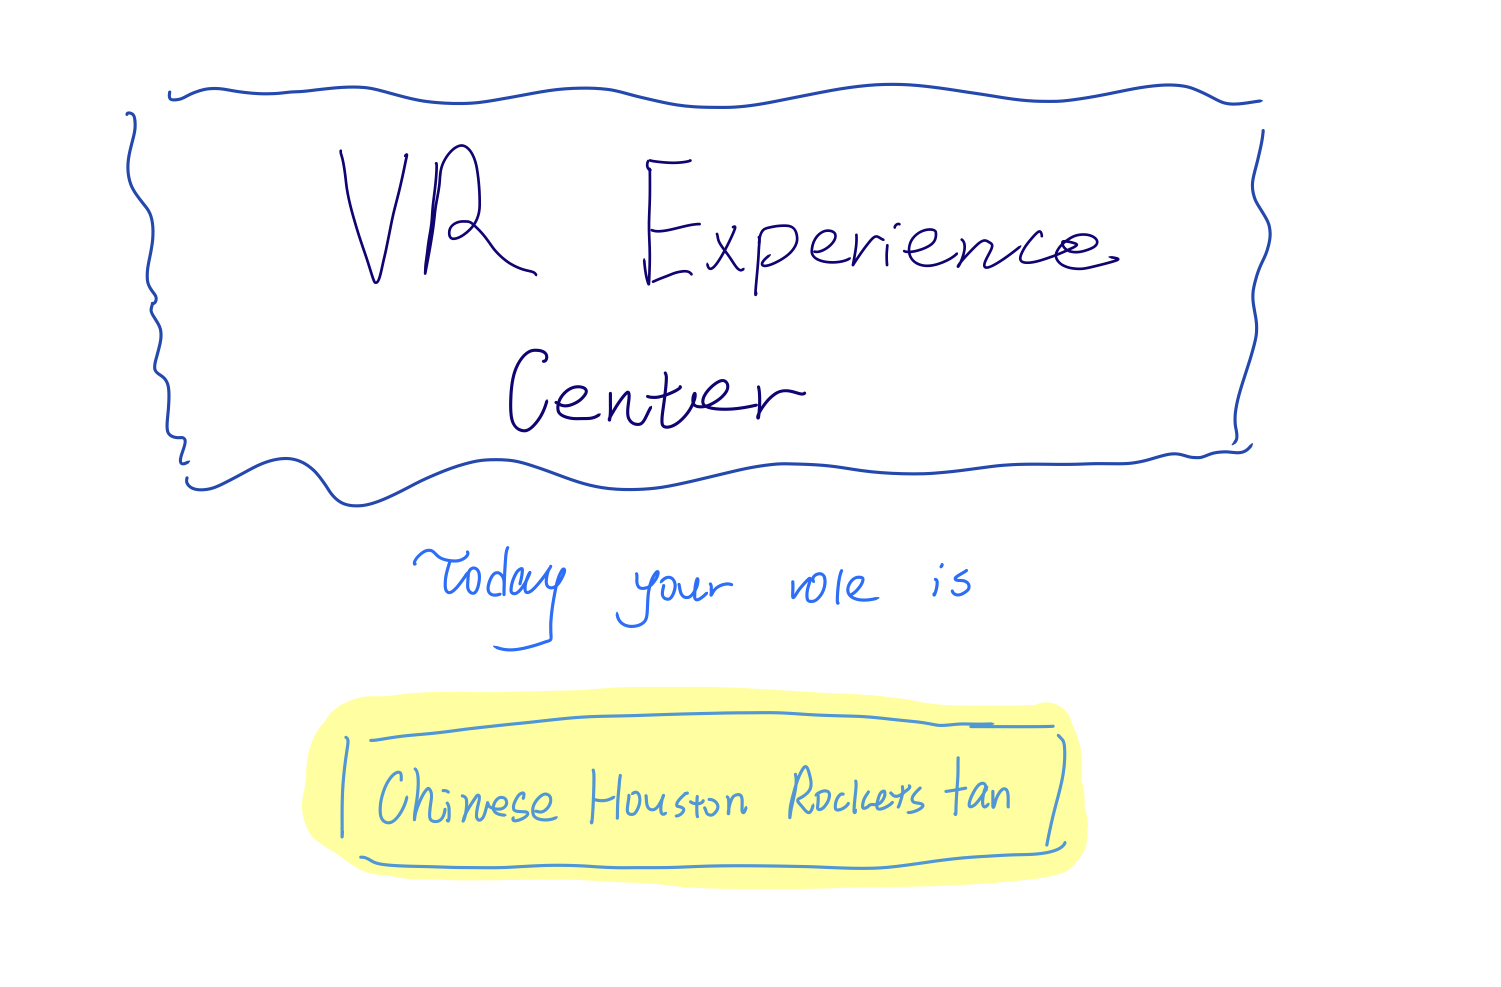 VR Experience
Center
Today your role is
Chinese Houston Rockets fan